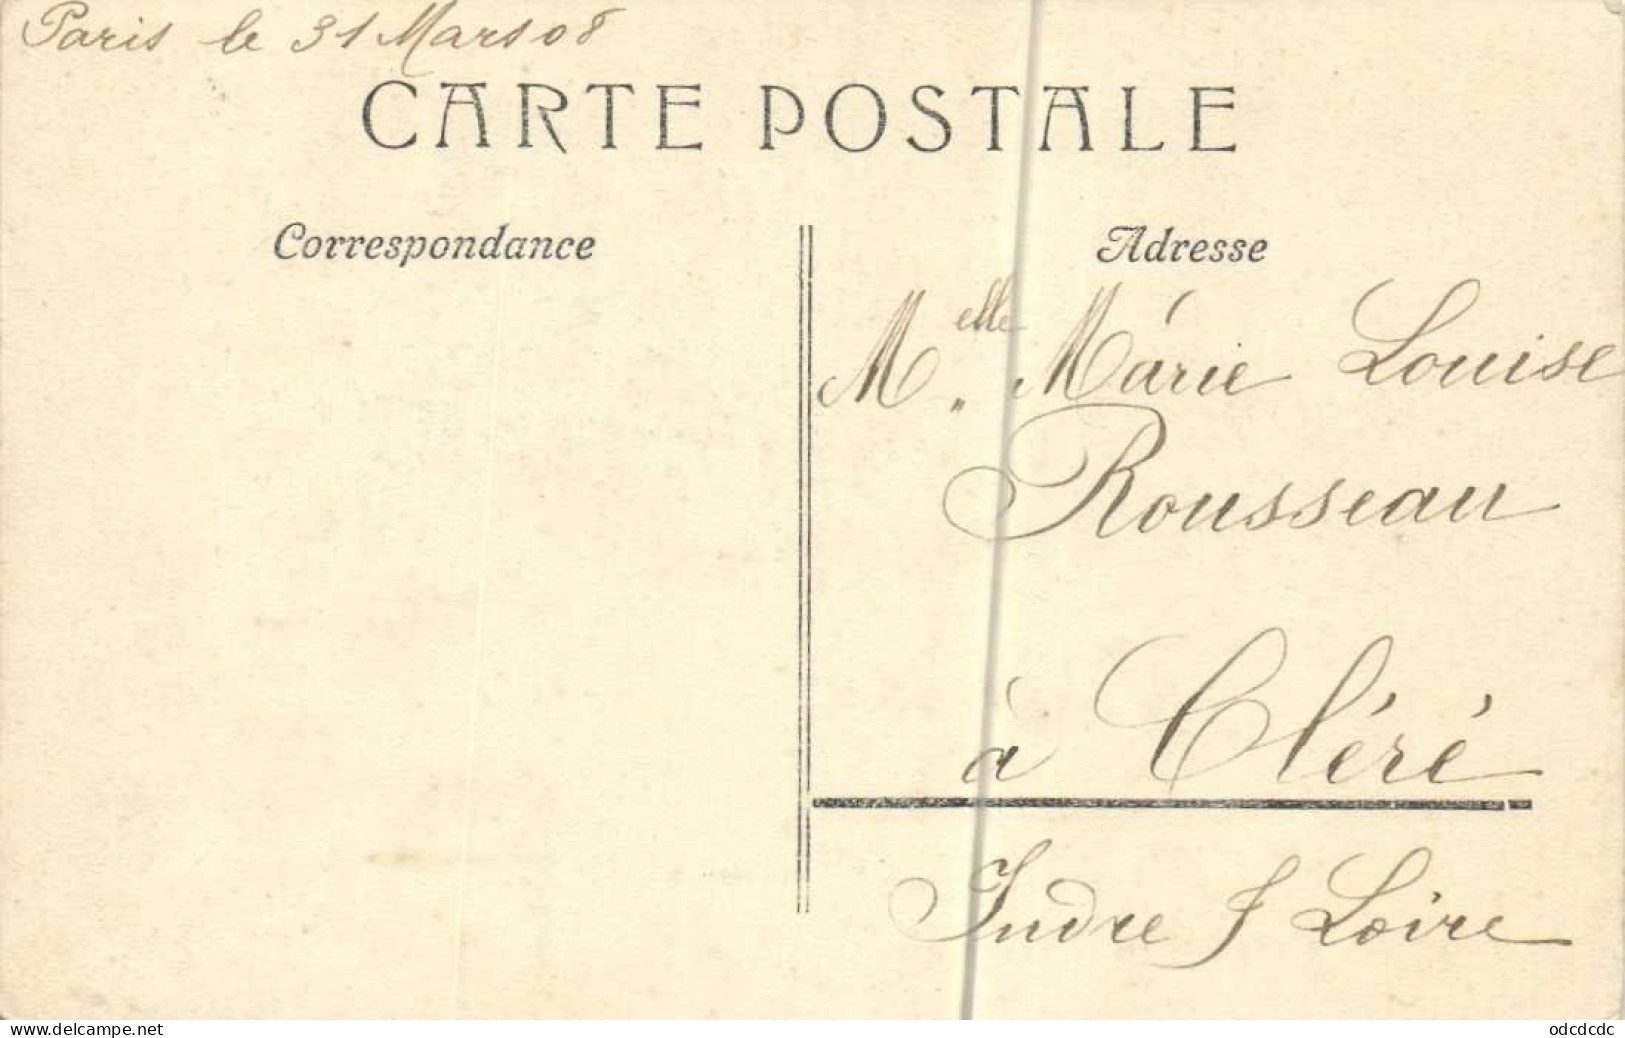 Paris le 31 Mars 08
CARTE POSTALE
Correspondance
Adresse
Melle Marie Louise
Rousseau
à Cléré
Indre & Loire
www.delcampe.net
odcdcdc